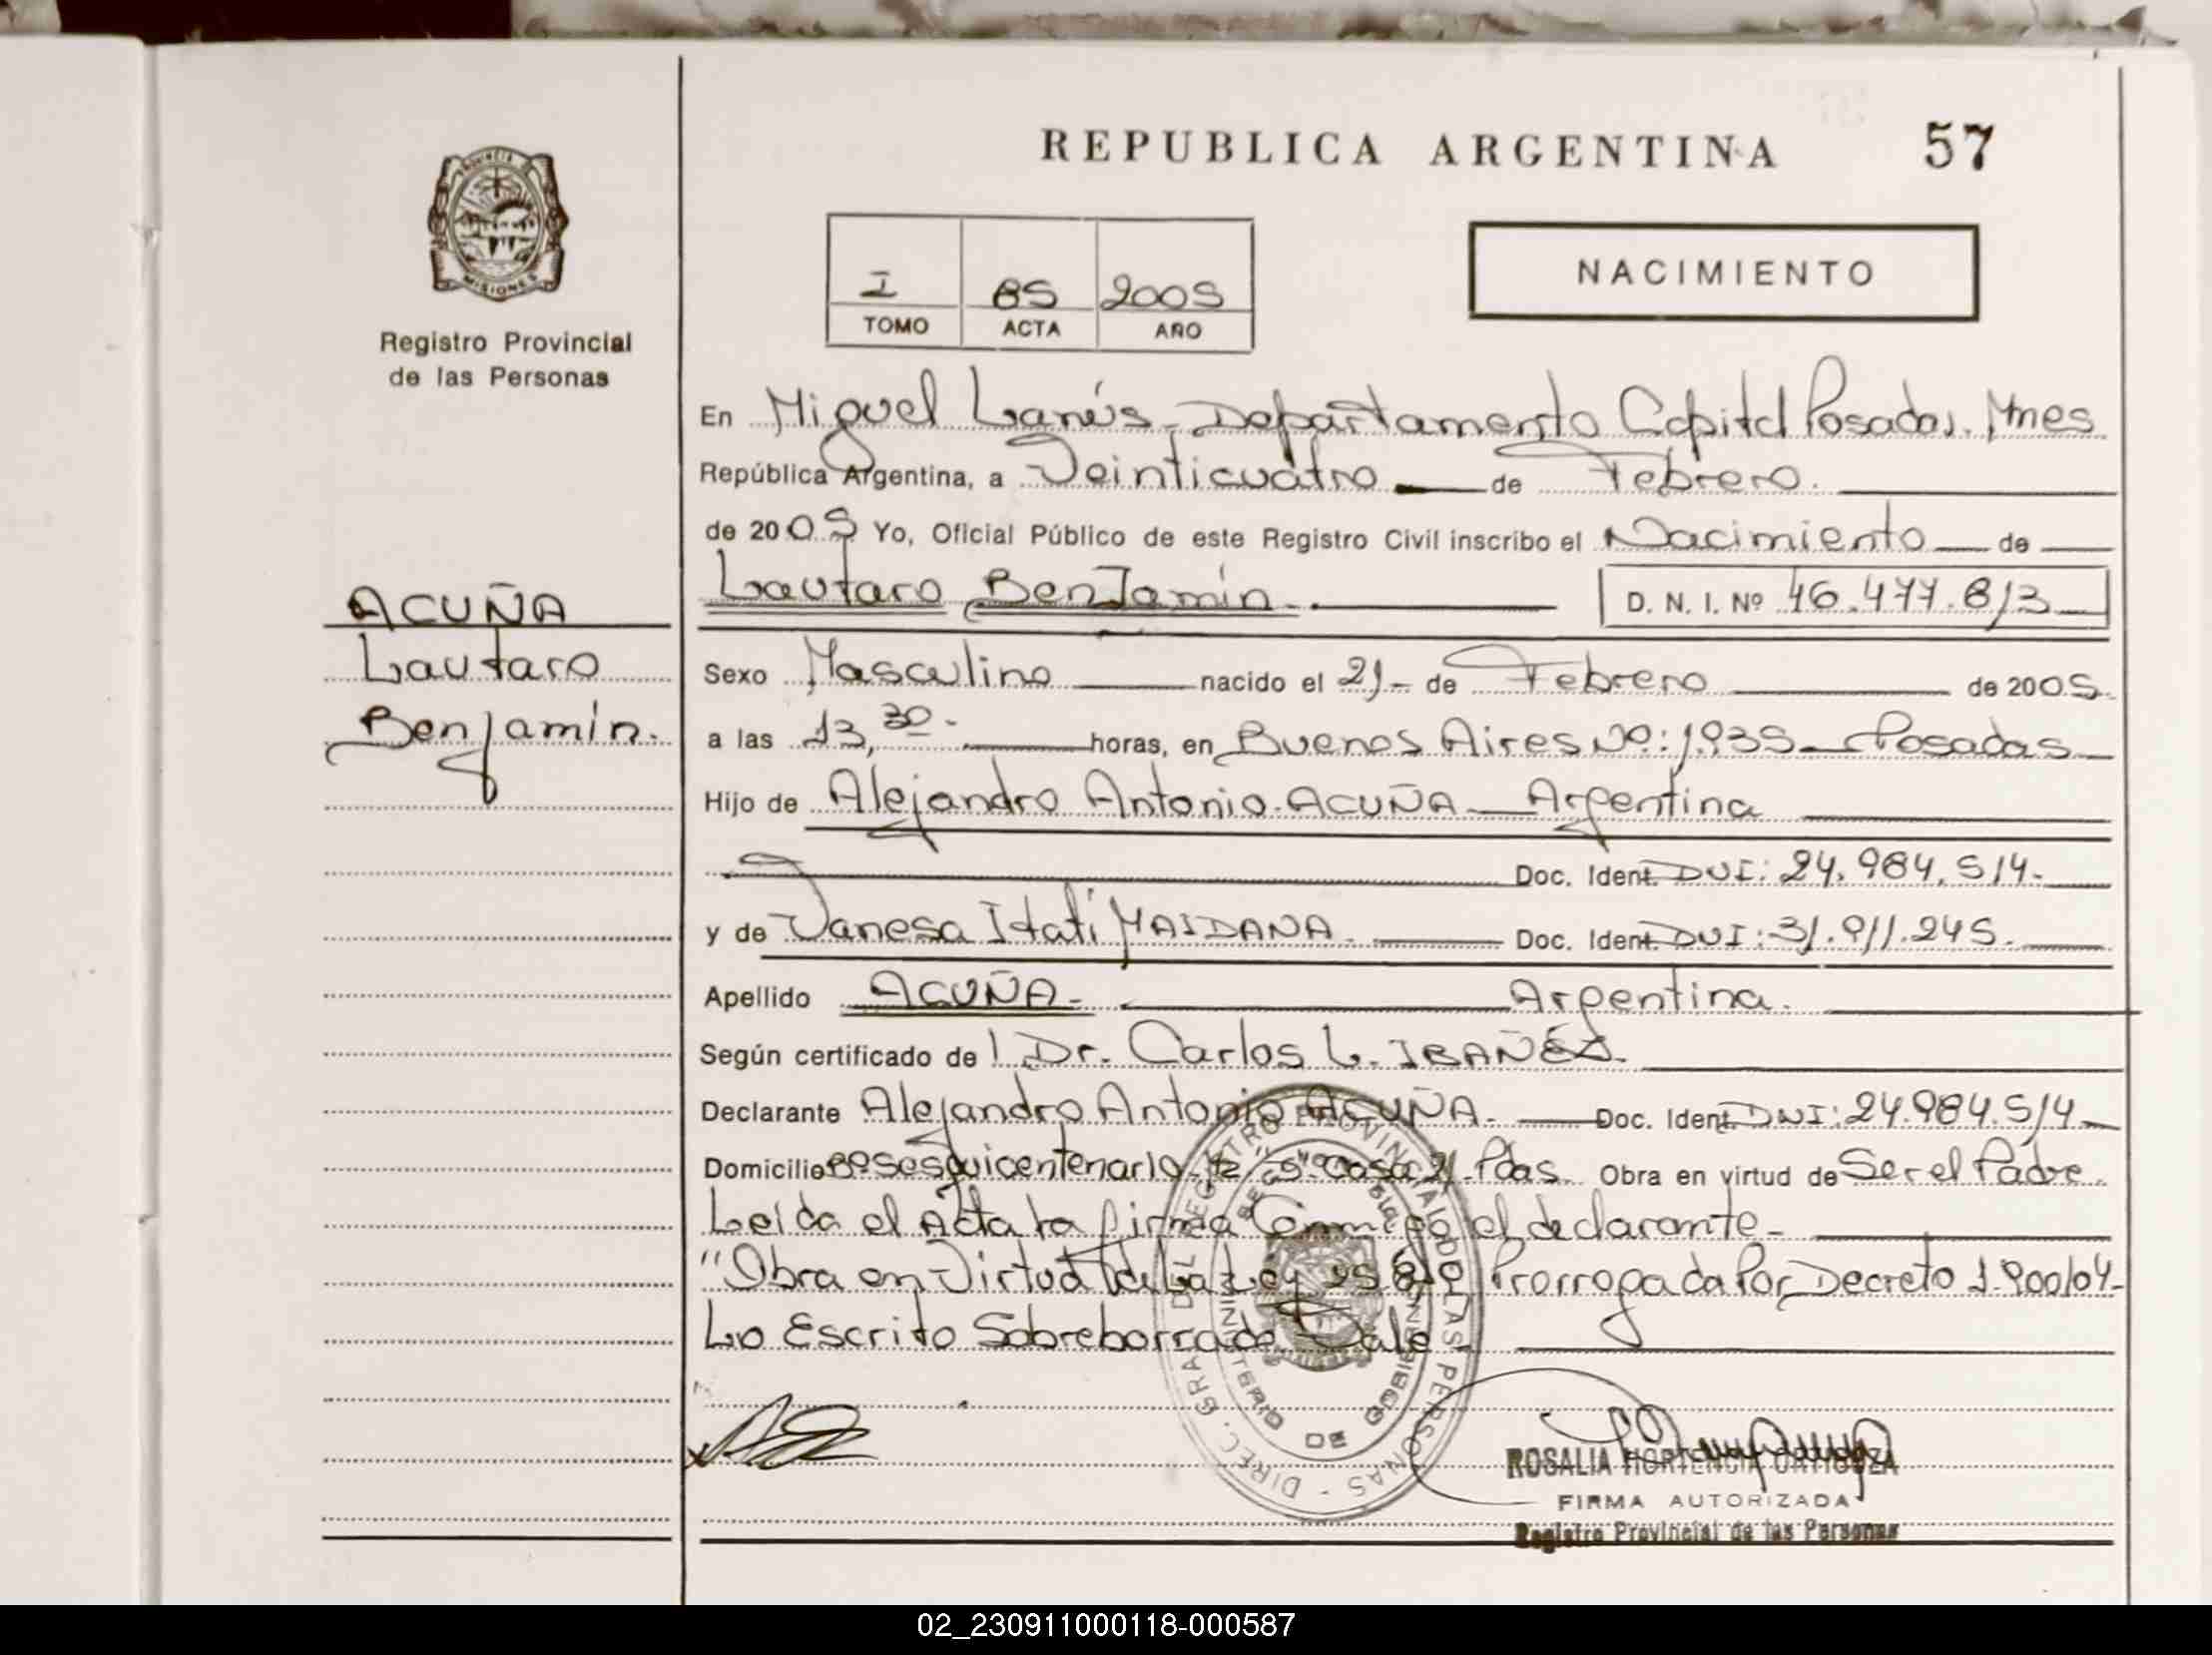 REPUBLICA ARGENTINA 57
PROVINCIA DE
MISIONES
Registro Provincial
de las Personas
I 85 2005
TOMO ACTA AÑO
NACIMIENTO
En Miguel Lanús - Departamento Capital Posadas. Mnes
República Argentina, a Veinticuatro de Febrero.
de 2005 Yo, Oficial Público de este Registro Civil inscribo el Nacimiento de
Lautaro Benjamín. D. N. I. Nº 46.477.813
ACUÑA
Lautaro
Benjamín.
Sexo Masculino nacido el 21- de Febrero de 2005.
a las 13,30- horas, en Buenos Aires Nº: 1.935 - Posadas
Hijo de Alejandro Antonio ACUÑA - Argentina
Doc. Ident. DNI: 24.984.514-
y de Vanesa Itatí MAIDANA. Doc. Ident. DNI: 31.911.245.
Apellido ACUÑA- Argentina.
Según certificado de Dr. Carlos L. IBAÑEZ.
Declarante Alejandro Antonio ACUÑA. Doc. Ident. DNI: 24.984.514
Domicilio Bº Sesquicentenario casa 21 Pdas. Obra en virtud de Ser el Padre.
Leída el Acta la firma Conmigo el declarante-
"Obra en Virtud de La Ley 25.819 Prorrogada Por Decreto 1.900/04-
Lo Escrito Sobreborrado Vale
DIREC. GRAL DEL REGISTRO PROVINCIAL DE LAS PERSONAS -
MINISTERIO DE GOBIERNO
ROSALIA HORTENCIA ORTIGOZA
FIRMA AUTORIZADA
Registro Provincial de las Personas
02_230911000118-000587